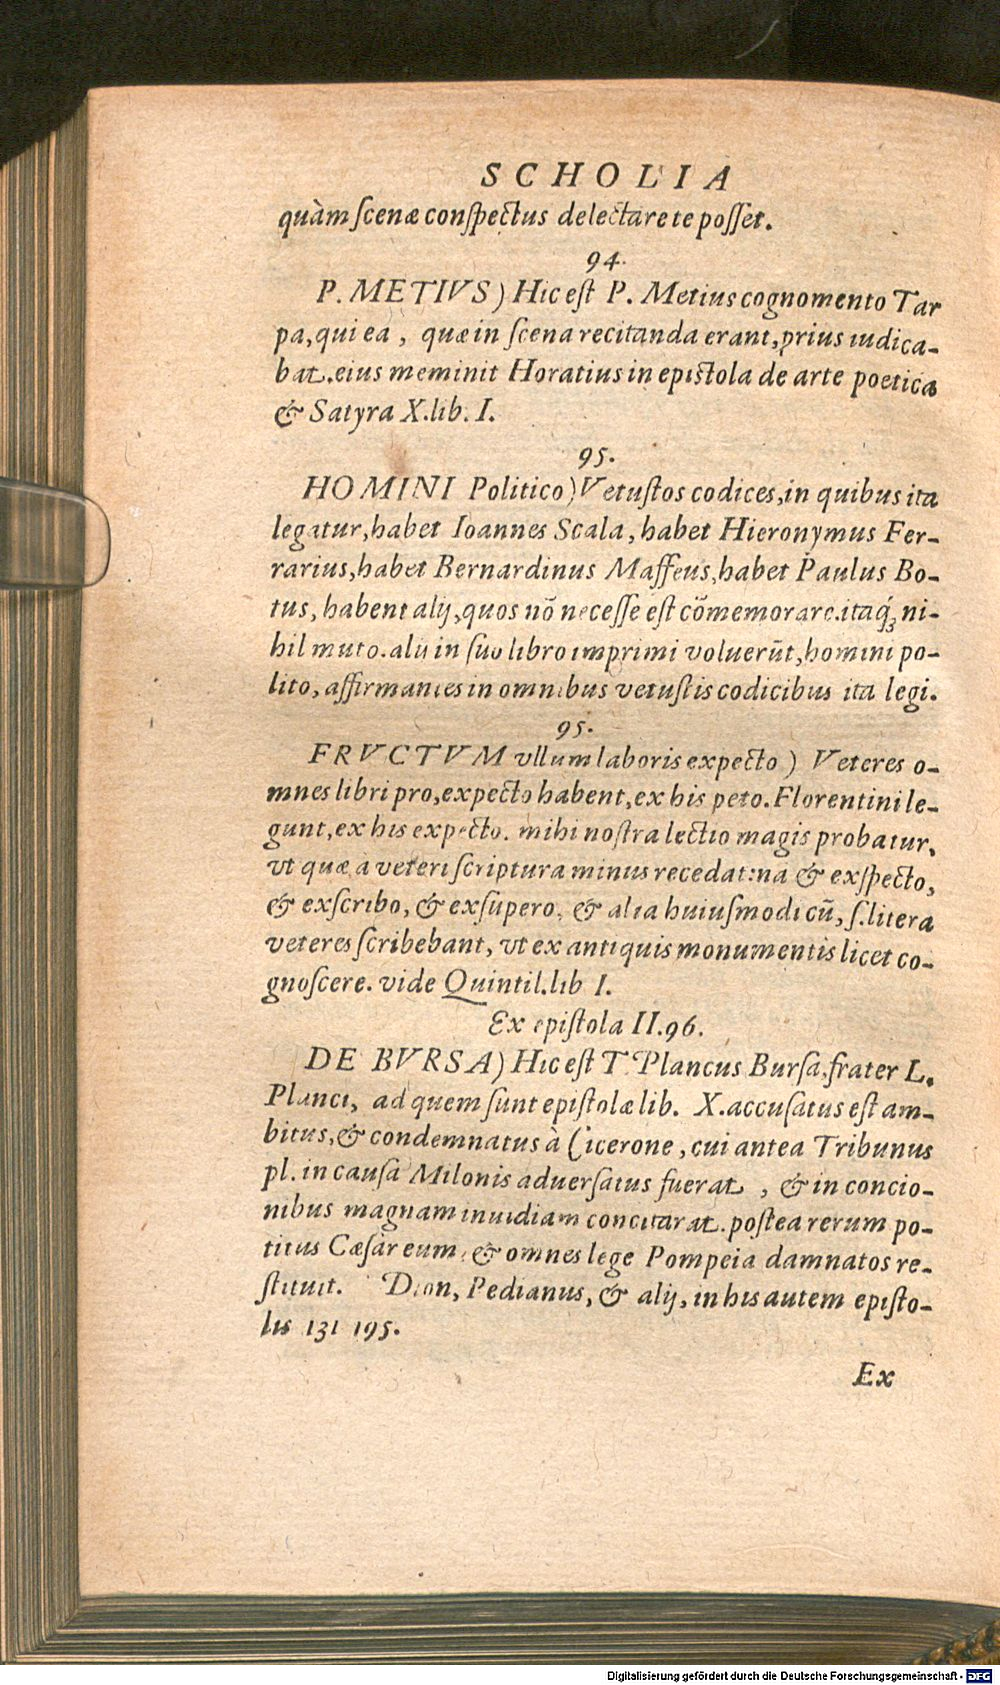 SCHOLIA
quàm scenæ conspectus delectare te posset.
94.
P. METIVS) Hic est P. Metius cognomento Tar
pa, qui ea, quæ in scena recitanda erant, prius iudica-
bat. eius meminit Horatius in epistola de arte poetica
& Satyra X. lib. I.
95.
HOMINI Politico) Vetustos codices, in quibus ita
legatur, habet Ioannes Scala, habet Hieronymus Fer-
rarius, habet Bernardinus Maffeus, habet Paulus Bo-
tus, habent alij, quos nō necesse est cōmemorare. itaq́ꝫ ni-
hil muto. alij in suo libro imprimi voluerūt, homini po-
lito, affirmantes in omnibus vetustis codicibus ita legi.
95.
FRVCTVM vllum laboris expecto) Veteres o-
mnes libri pro, expecto habent, ex his peto. Florentini le-
gunt, ex his expecto. mihi nostra lectio magis probatur,
vt quæ à veteri scriptura minus recedat: na & exspecto,
& exscribo, & exsupero, & alia huiusmodi cū, s. litera
veteres scribebant, vt ex antiquis monumentis licet co-
gnoscere. vide Quintil. lib I.
Ex epistola II. 96.
DE BVRSA) Hic est T. Plancus Bursa, frater L.
Planci, ad quem sunt epistolæ lib. X. accusatus est am-
bitus, & condemnatus à Cicerone, cui antea Tribunus
pl. in causa Milonis aduersatus fuerat, & in concio-
nibus magnam inuidiam concitarat. postea rerum po-
titus Cæsar eum, & omnes lege Pompeia damnatos re-
stituit. Dion, Pedianus, & alij, in his autem episto-
lis 131 195.
Ex
Digitalisierung gefördert durch die Deutsche Forschungsgemeinschaft - DFG